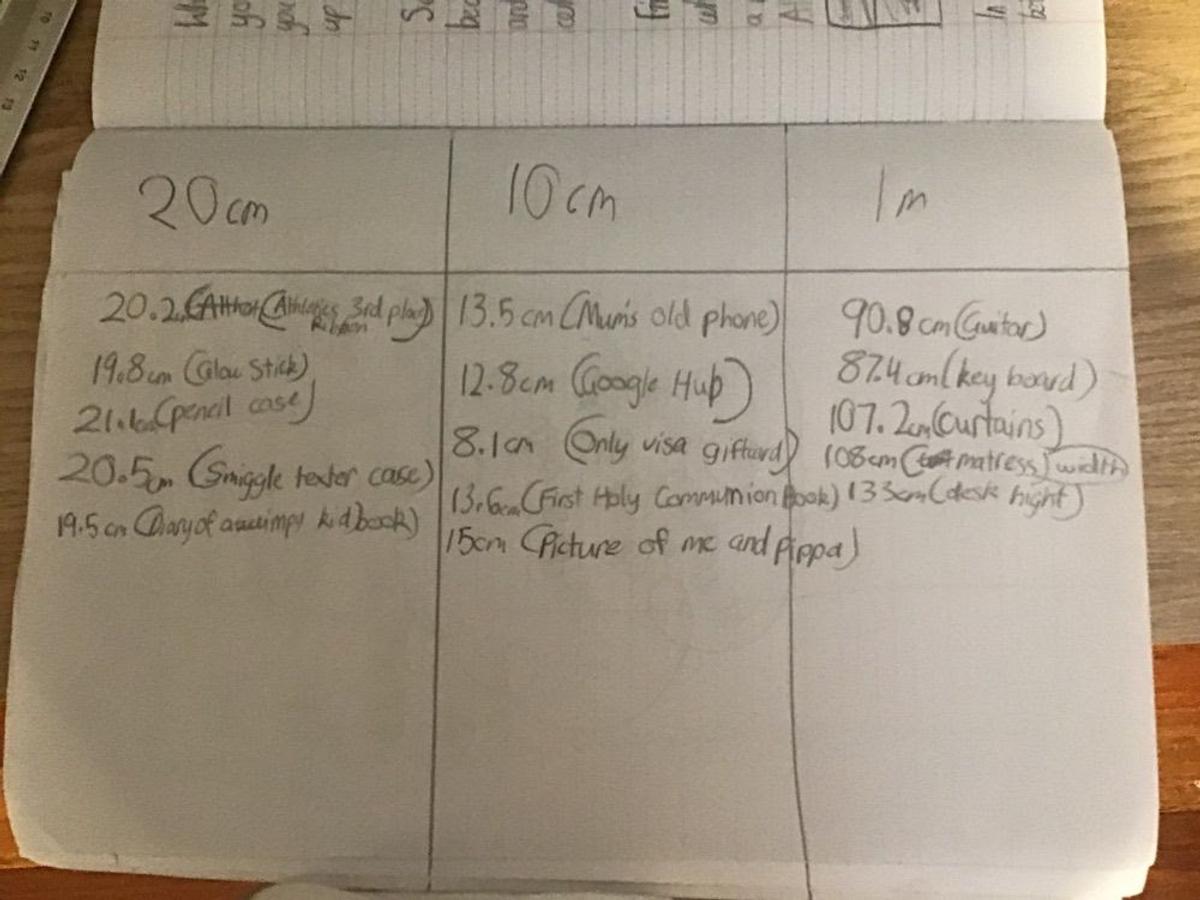 20cm
10cm
1m
20.2 (Athletics 3rd place
Ribbon
19.8cm (Glow Stick)
21.1cm (pencil case)
20.5cm (Smiggle texter case)
19.5cm (Diary of a wimpy kid book)
13.5cm (Mum's old phone)
12.8cm (Google Hub)
8.1cm (Only visa giftcard)
13.6cm (First Holy Communion Book)
15cm (Picture of me and pippa)
90.8cm (Guitar)
87.4cm (key board)
107.2cm (Curtains)
108cm (matress) width
133cm (desk hight)